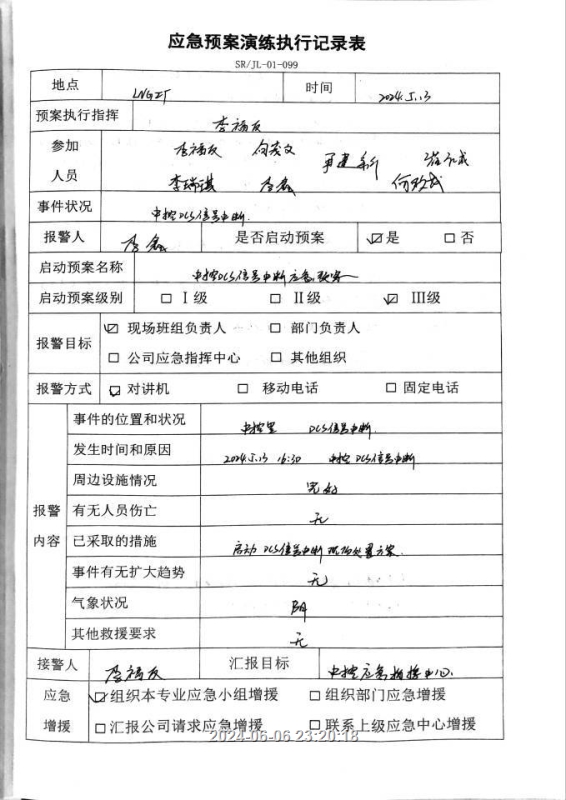 应急预案演练执行记录表
SR/JL-01-099
地点 时间 2024.5.13
预案执行指挥 李福友
参加人员 李福友
李瑞琪 李磊
事件状况 中控DCS信号中断
报警人 李磊 是否启动预案 ☑是 □否
启动预案名称 中控DCS信号中断应急预案
启动预案级别 □Ⅰ级 □Ⅱ级 ☑Ⅲ级
报警目标 ☑现场班组负责人 □部门负责人
□公司应急指挥中心 □其他组织
报警方式 ☑对讲机 □移动电话 □固定电话
报警内容
事件的位置和状况 中控室 DCS信号中断.
发生时间和原因 2024.5.13 16:30 中控DCS信号中断
周边设施情况 完好
有无人员伤亡 无
已采取的措施 启动DCS信号中断现场处置方案.
事件有无扩大趋势 无
气象状况 阴
其他救援要求 无
接警人 李福友 汇报目标 中控应急指挥中心.
应急增援 ☑组织本专业应急小组增援 □组织部门应急增援
□汇报公司请求应急增援 □联系上级应急中心增援
2024-06-06 23:20:18